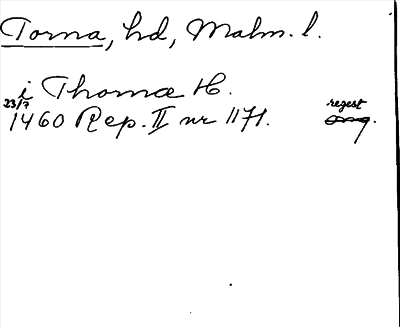 Torna, hd, Malm. l.
i Thornæ H.
23/7 regest
1460 Rep. II nr 1171. orig.